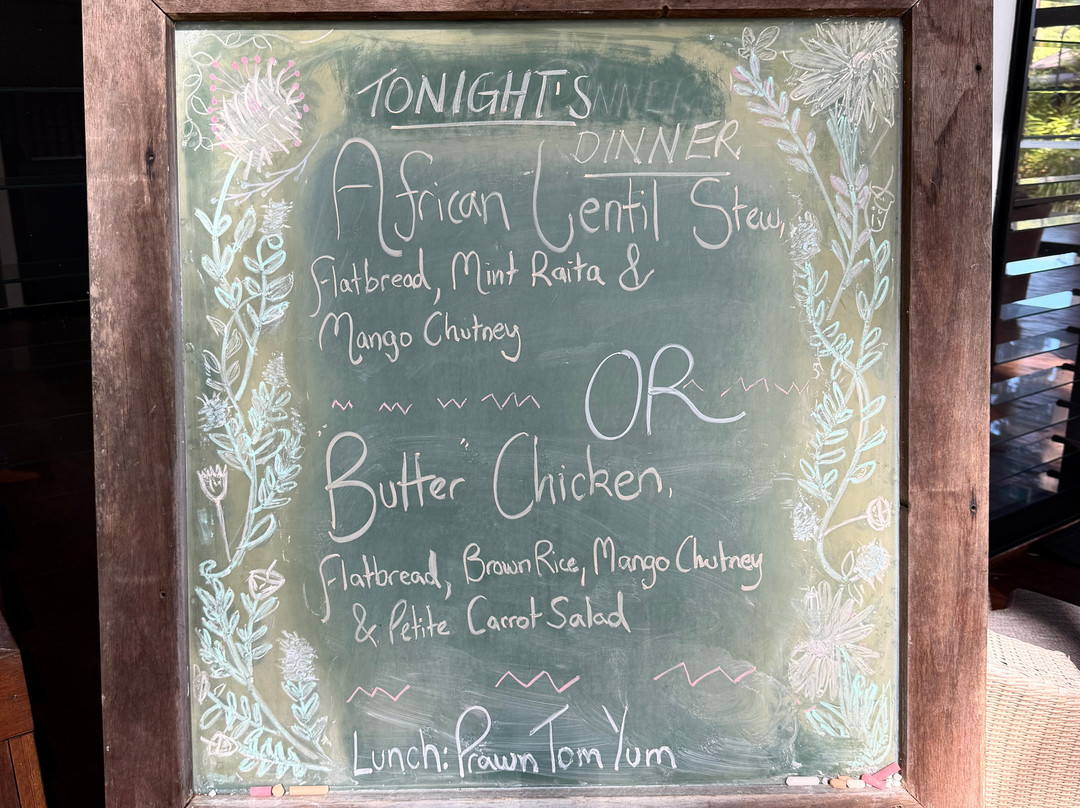 TONIGHT'S
DINNER
African Lentil Stew,
Flatbread, Mint Raita &
Mango Chutney
OR
"Butter" Chicken,
Flatbread, Brown Rice, Mango Chutney
& Petite Carrot Salad
Lunch: Prawn Tom Yum